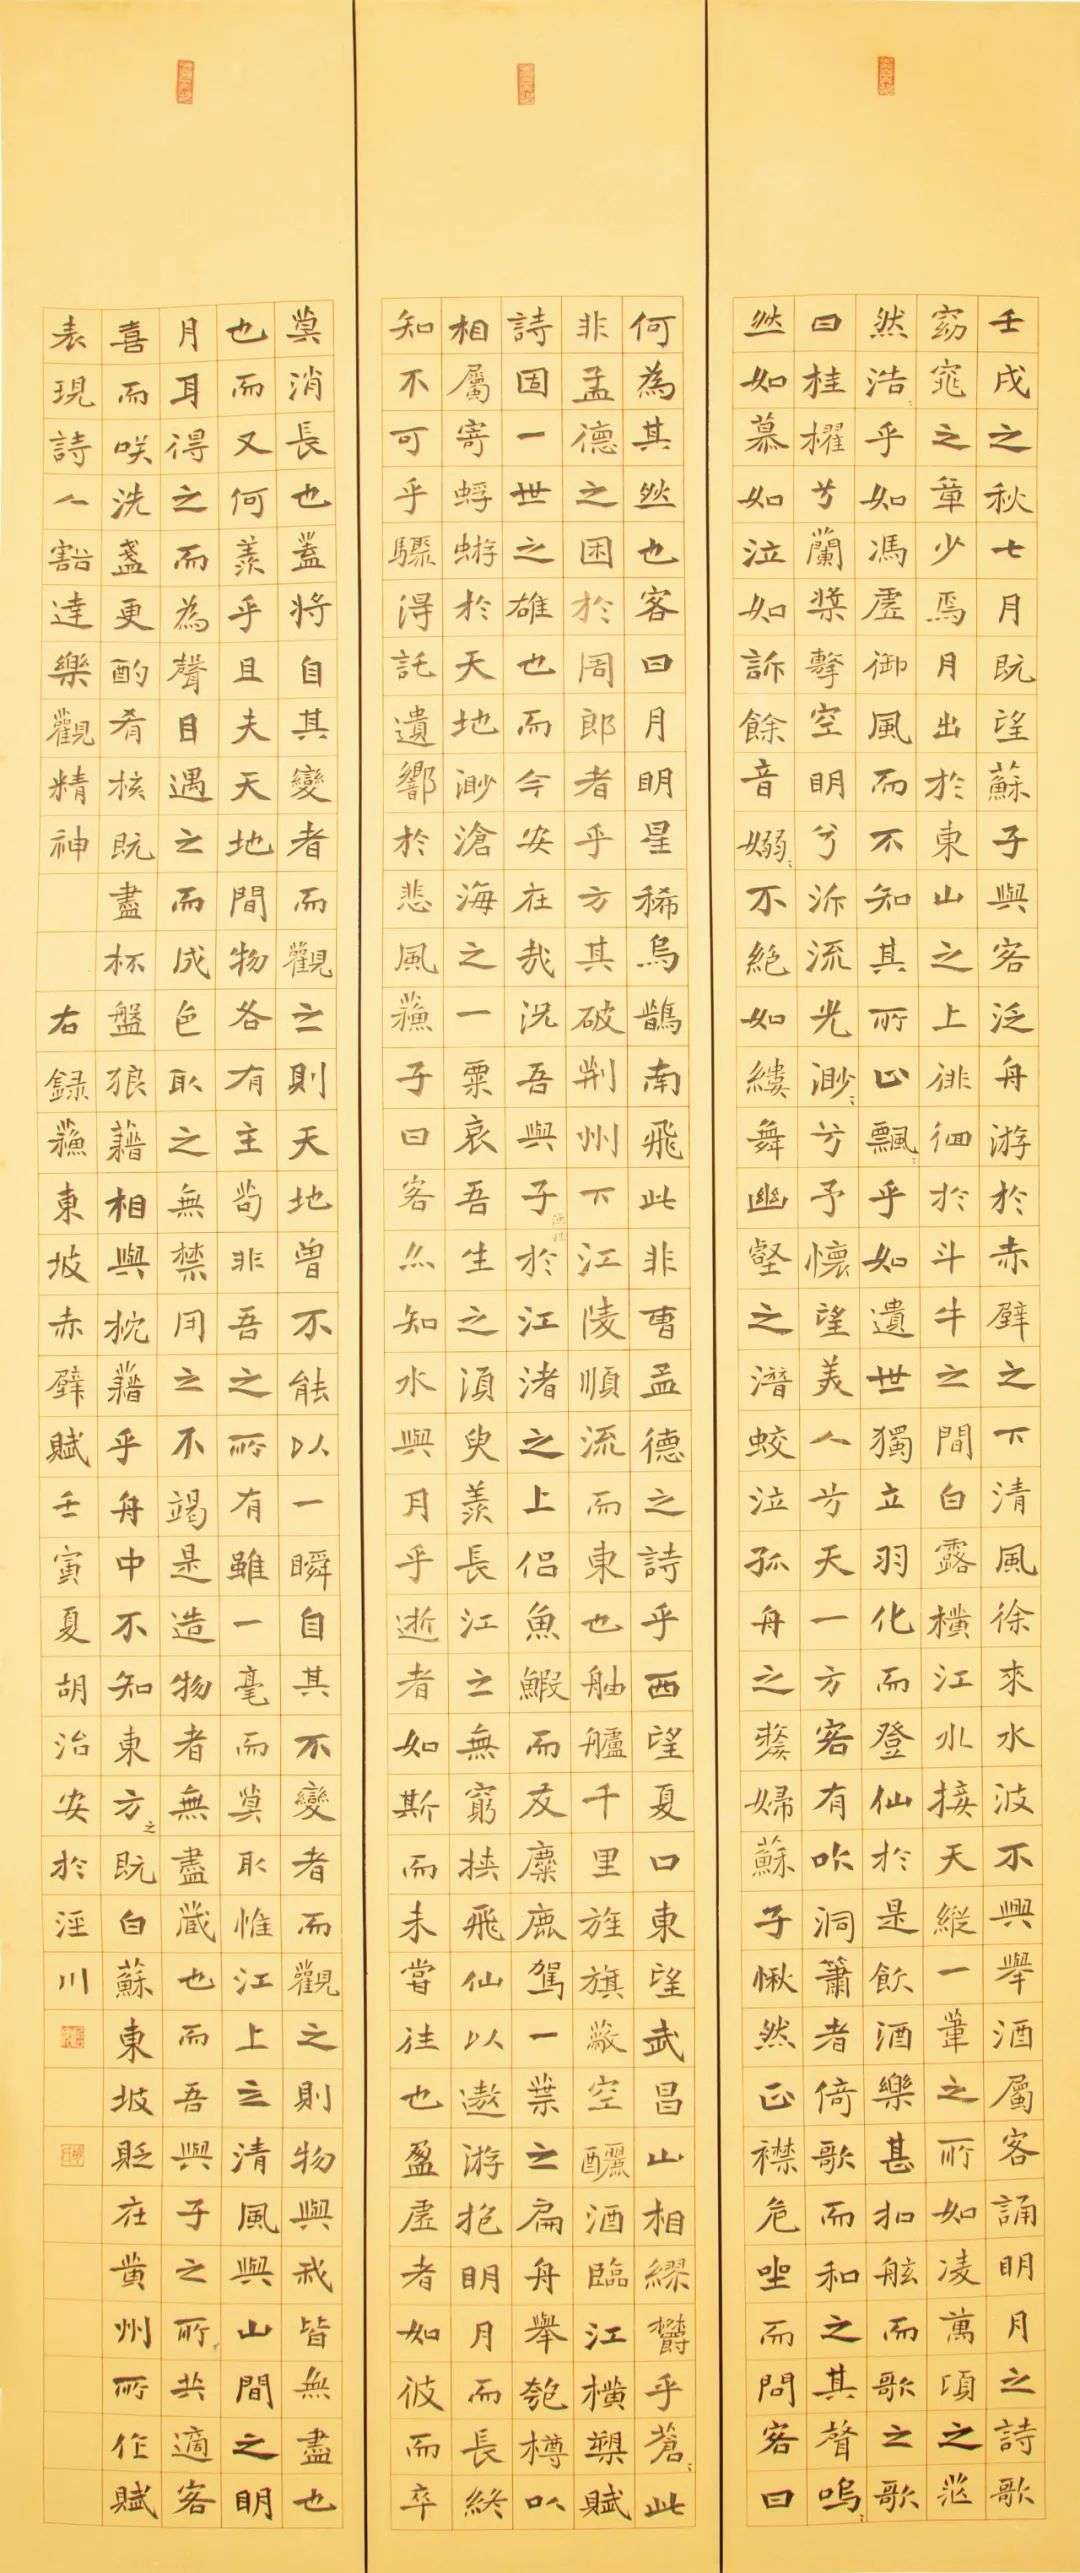 壬戌之秋七月既望蘇子與客泛舟游於赤壁之下清風徐來水波不興舉酒屬客誦明月之詩歌
窈窕之章少焉月出於東山之上徘徊於斗牛之間白露橫江水接天縱一葦之所如凌萬頃之茫
然浩々乎如馮虛御風而不知其所止飄々乎如遺世獨立羽化而登仙於是飲酒樂甚扣舷而歌之歌
曰桂櫂兮蘭槳擊空明兮泝流光渺々兮予懷望美人兮天一方客有吹洞簫者倚歌而和之其聲嗚々
然如慕如泣如訴餘音嫋々不絕如縷舞幽壑之潛蛟泣孤舟之嫠婦蘇子愀然正襟危坐而問客曰
何為其然也客曰月明星稀烏鵲南飛此非曹孟德之詩乎西望夏口東望武昌山相繆鬱乎蒼々此
非孟德之困於周郎者乎方其破荊州下江陵順流而東也舳艫千里旌旗蔽空釃酒臨江橫槊賦
詩固一世之雄也而今安在哉況吾與子漁樵於江渚之上侶魚鰕而友麋鹿駕一葉之扁舟舉匏樽以
相屬寄蜉蝣於天地渺滄海之一粟哀吾生之須臾羨長江之無窮挾飛仙以遨游抱明月而長終
知不可乎驟得託遺響於悲風蘇子曰客亦知水與月乎逝者如斯而未嘗往也盈虛者如彼而卒
莫消長也蓋將自其變者而觀之則天地曾不能以一瞬自其不變者而觀之則物與我皆無盡也
也而又何羨乎且夫天地間物各有主苟非吾之所有雖一毫而莫取惟江上之清風與山間之明
月耳得之而為聲目遇之而成色取之無禁用之不竭是造物者無盡藏也而吾與子之所共適客
喜而咲洗盞更酌肴核既盡杯盤狼藉相與枕藉乎舟中不知東方之既白蘇東坡貶在黃州所作賦
表現詩人豁達樂觀精神 右錄蘇東坡赤壁賦壬寅夏胡治安於涇川